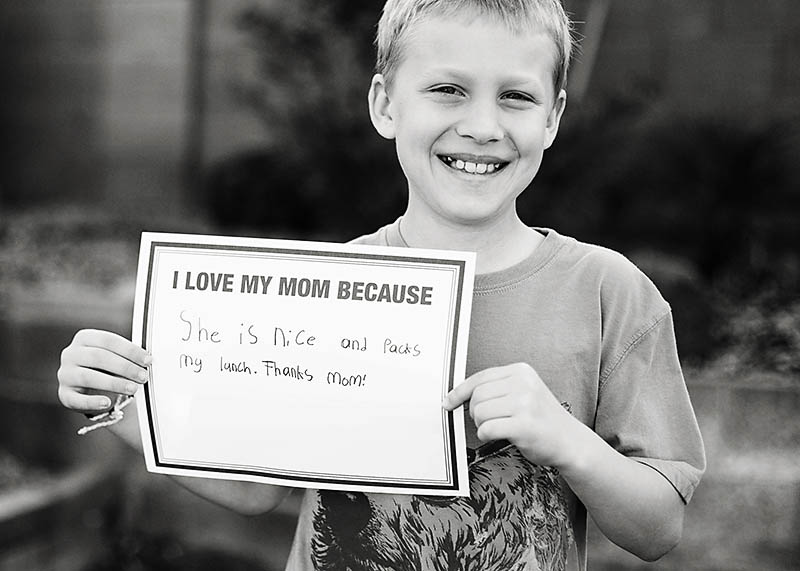 I LOVE MY MOM BECAUSE
She is nice and packs
my lunch. Thanks Mom!